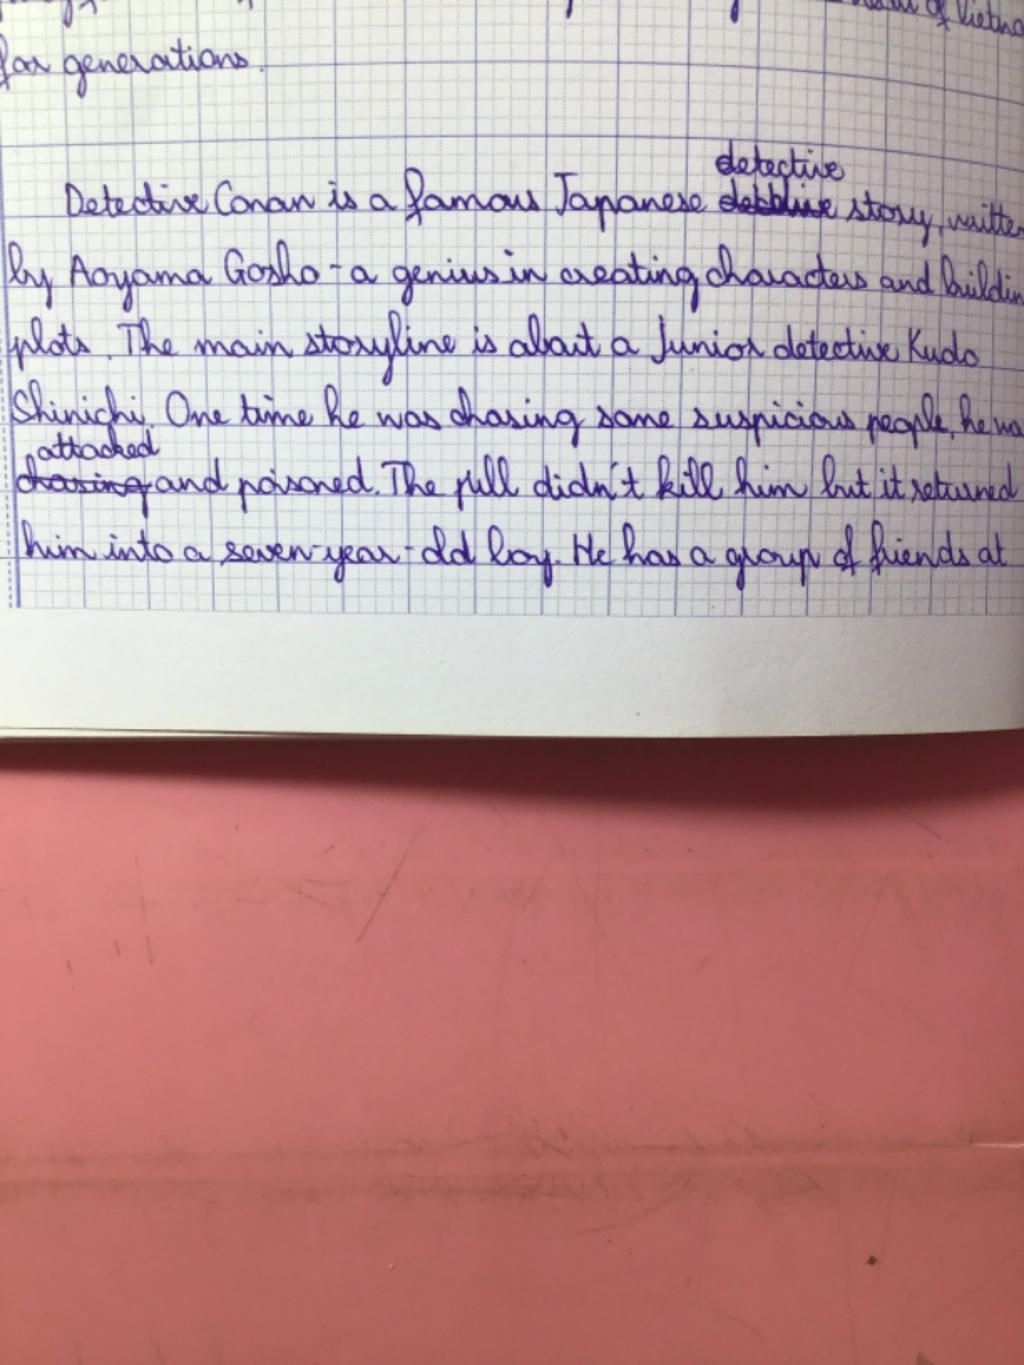 of Vietna
for generations.
detective
Detective Conan is a famous Japanese story, written
by Aoyama Gosho - a genius in creating characters and buildin
plots. The main storyline is about a Junior detective Kudo
Shinichi. One time he was chasing some suspicious people, he wa
attacked
chasing and poisoned. The pill didn't kill him but it returned
him into a seven-year-old boy. He has a group of friends at